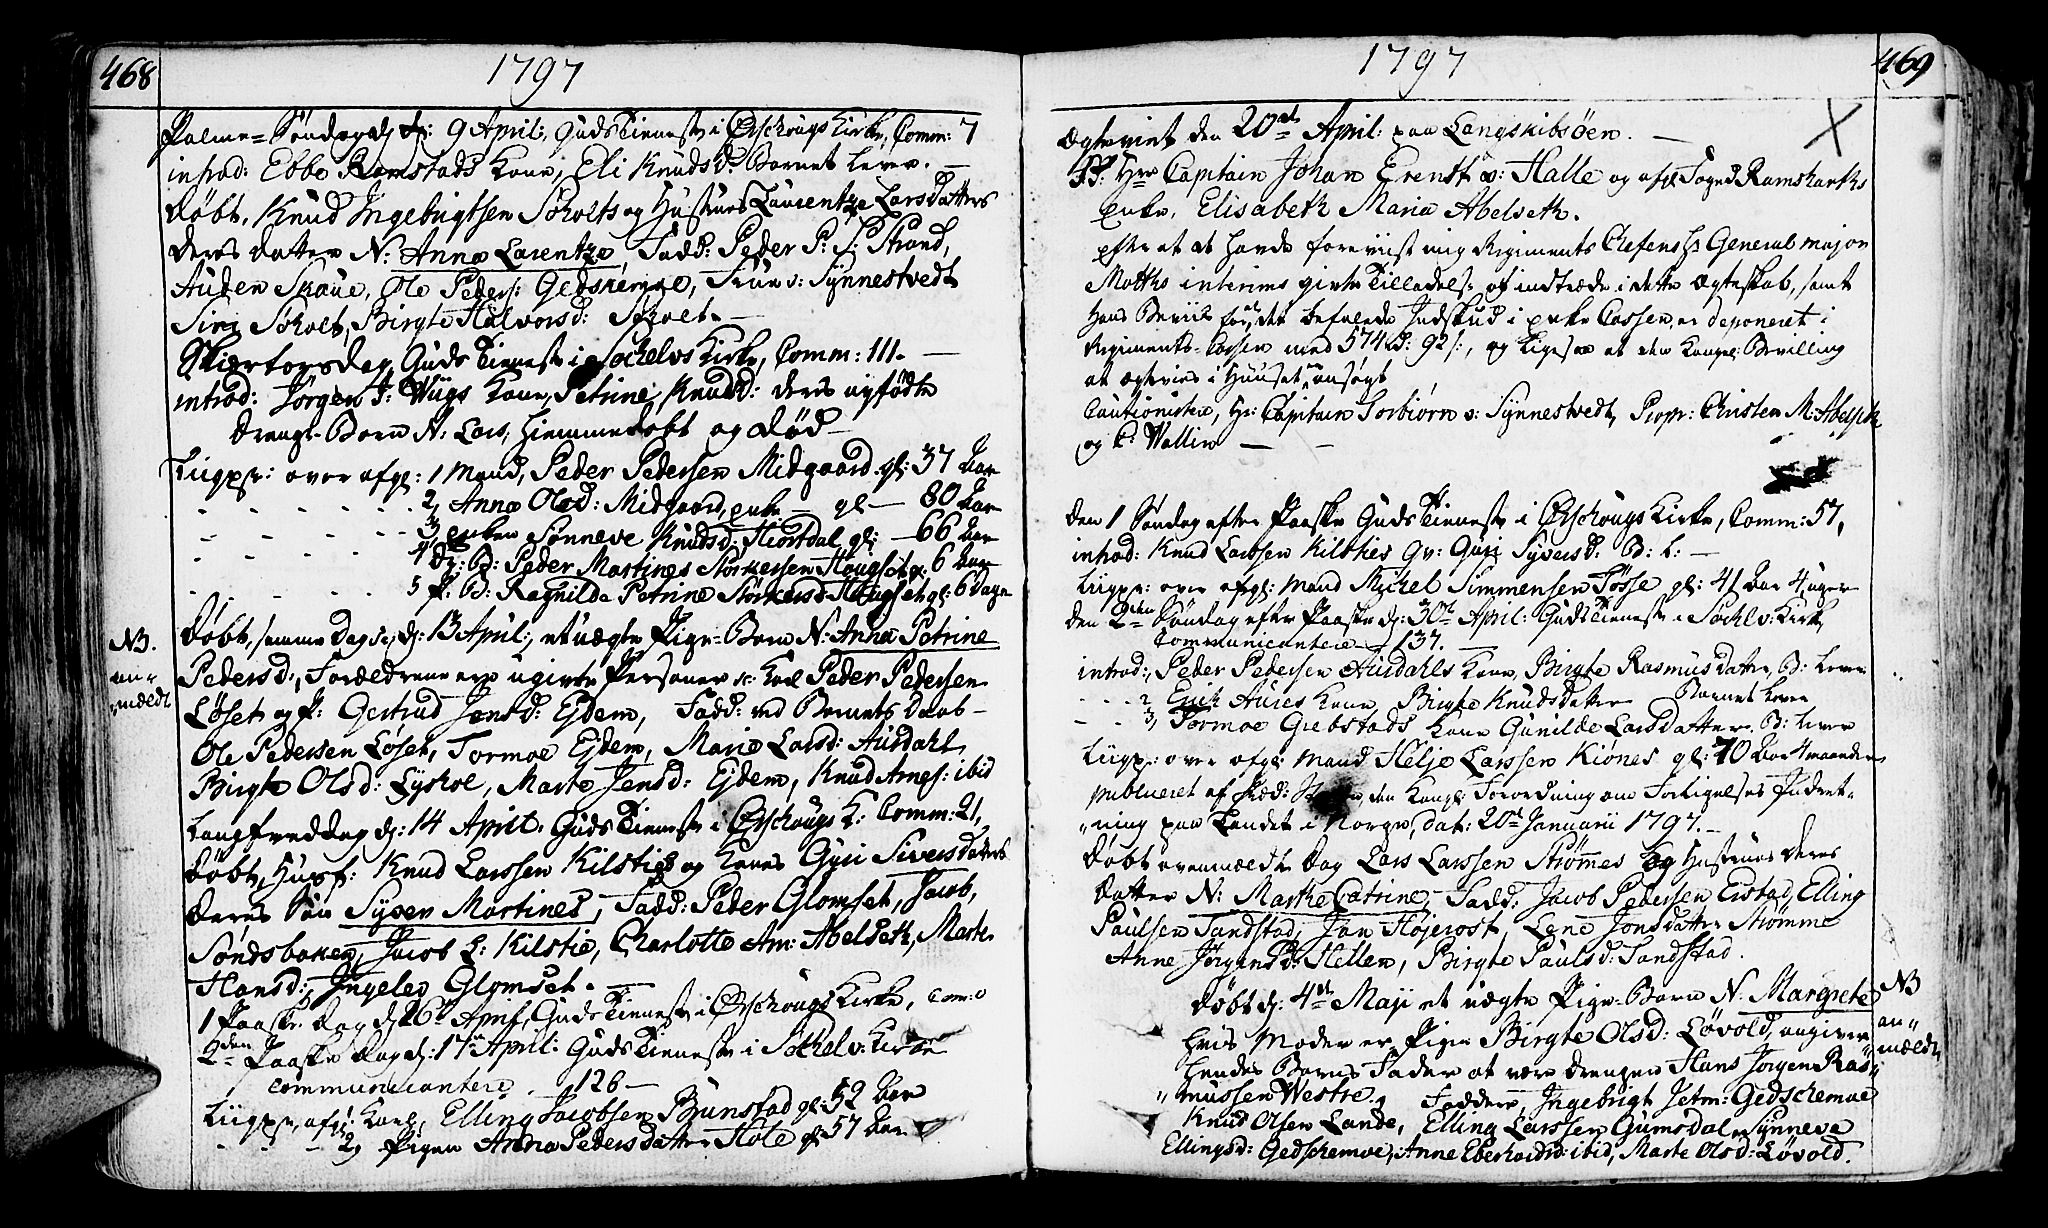 468
1797
Palme-Søndag d: 9 April:, Guds Tieneste i Ørschougs Kirke, Comm: 7
introd: Ebbe Ramstads Kone, Eli Knudsd: Barnet lever. —
Døbt, Knud Ingebrigtsen Søholts og Hustrues Laurentze Larsdatters
deres datter N: Anna Larentze, Fadd: Peder P: S: Strand,
Auden Skoue, Ole Peders: Gedskemoe, Frue v: Synnestvedt
Siri Søholt, Birgte Halvorsd: Søholt. —
Skiertorsdag, Guds Tieneste i Sochelvs Kirke, Comm: 111. —
introd: Jørgen J: Wiigs Kone, Petrine Knudsd: deres nyfødte
Drenge-Barn N: Lars, hiemmedøbt og død —
Liigpr: over afg: 1 Mand, Peder Pedersen Midgaard gl: 37 Aar
2, Anna Olsd: Midgaard, enke — gl — 80 Aar
3, enken Sønneve Knudsd: Hiortdal gl: — 66 Aar
4 Dr: B: Peder Martines Størkersen Hougset gl: 6 Aar
5 P. B: Ragnilda Petrine Størkersd: Hougset gl: 6 Dage
NB.
an-
mældt
Døbt, samme Dag, d: 13 April:, et uægte Pige-Barn N: Anna Petrine
Pedersd:, Forældrene ere ugivte Personer Karl Peder Pedersen
Løset og P: Gertrud Jensd: Ejdem, Fadd: ved Barnets Daab —
Ole Pedersen Løset, Tormoe Ejdem, Marie Larsd: Aurdahl
Birgte Olsd: Lyshoe, Marte Jensd: Ejdem, Knud Arnes: ibid
Langfreddag d: 14 April: Guds Tieneste i Ørschougs K: Comm: 21,
Døbt, Huusf: Knud Larssen Kilsties og Kones Guri Siversdatters
deres Søn Syver Martines, Fadd: Peder Glomset, Jacob
Søndsbaken, Jacob L: Kilstie, Charlotte Am: Abelseth, Marte
Hansd:, Ingeleg Glomset. —
1 Paaske Dag d: 16 April, Guds Tieneste i Ørschougs Kirke, Com: 0
2den Paaske Dag d: 17 April: Guds Tieneste i Sochelv: Kirke
Communicantere 126 —
Liigpr, afg: 1 Karl, Elling Jacobsen Bunstad gl: 52 Aar
2, Pigen Anna Pedersdatter Hole gl: 57 Aar
1797
469
Ægteviet den 20de April: paa Langskibsøen. —
SS: Hr Captain Johan Ernst v: Halle og afg: Foged Ramsharths
enke, Elisabeth Maria Abelseth.
efter at at hande foreviist mig Regiments Chefens Hr General major
Moths interims givne Tilladelse at indtræde i dette Ægteskab, samt
Hans Beviis for, at det befalede Indskud i enke Cassen, er deponeret i
Regiments-Cassen med 574 rd: 92 s:, og ligesaa at den Kongel: Bevilling
at ægtevies i Huuset er ansøgt
Cautionistere, Hr: Capitain Torbiørn v: Synnestvedt, Propr: Christen M: Abelseth
og C: Wallin — —
den 1 Søndag efter Paaske Guds Tieneste i Ørschougs Kirke, Comm: 57,
introd: Knud Larssen Kilsties Qv: Guri Syversd: B: L: —
Liigpr: over afg: Mand Michel Simmensen Tøsse gl: 41 Aar 4 uger
den 2den Søndag efter Paaske d: 30te April: Guds Tieneste i Sochelv: Kirke
Communicantere — 137. —
introd:, Peder Pedersen Aurdahls Kone, Birgte Rasmusdatter, B: lever
2, Erich Aures Kone, Birgte Knudsdatter Barnet lever
3, Tormoe Grebstads Kone Gunilde Larsdatter B: lever
Liigpr: over afg: Mand Helje Larssen Kiønes gl: 70 Aar 4 Maander
publiceret af Præd: den Kongl: Forordning om Forligelses Indret-
ning paa Landet i Norge, dat: 20de Januarii 1797. —
Døbt ovenmældte Dag Lars Larssen Strømmes og Hustrues deres
datter N: Marthe Catrine, Fadd: Jacob Pedersen Erstad, Elling
Paulsen Tandstad, Jan Højerost, Lene Jonsdatter Strømme
Anne Jørgensd: Hellen, Birgte Paulsd: Tandstad.
NB
an-
mældt
Døbt d: 4de Maji et uægte Pige-Barn N: Margrete
hvis Moder er Pigen Birgte Olsd: Løvold, angiver
hendes Barns Fader at være drengen Hans Jørgen Ras-
mussen Westre, Faddere, Ingebrigt Jetm: Gedschemoe
Knud Olsen Lande, Elling Larssen Gumsdal, Synneva
Ellingsd: Gedschemoe, Anne Eberhardsd: ibid, Marte Olsd: Løvold.